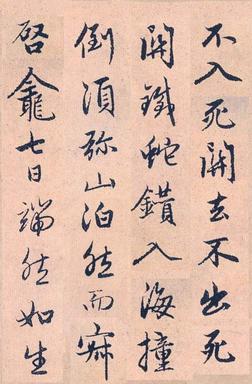 不入死關去不出死
關鐵蛇鑽入海撞
倒須弥山泊然而寂
啓龕七日端然如生